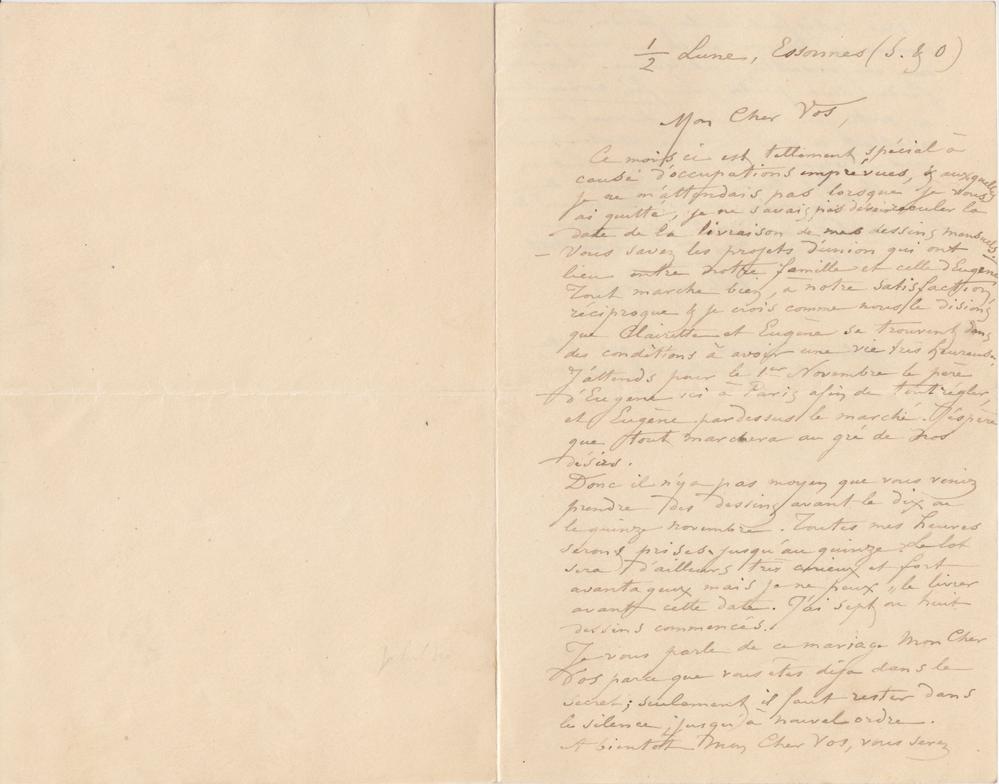 1/2 Lune, Essonnes (S. & O)
Mon Cher Vos,
Ce mois ci est tellement spécial à
cause d'occupations imprévues, & auxquelles
je ne m'attendais pas lorsque je vous
ai quitté, je ne savais pas devoir reculer la
date de la livraison de mes dessins mensuels.
– Vous savez les projets d'union qui ont
lieu entre notre famille et celle d'Eugène
Tout marche bien, à notre satisfaction
réciproque & je crois comme nous le disions
que Clairette et Eugène se trouvent dans
des conditions à avoir une vie très heureuse.
J'attends pour le 1er Novembre le père
d'Eugène ici à Paris afin de tout régler,
et Eugène pardessus le marché. J'éspère
que tout marchera au gré de nos
désirs.
Donc il n'y a pas moyen que vous veniez
prendre des dessins avant le dix ou
le quinze novembre. Toutes mes heures
seront prises jusqu'au quinze. Le lot
sera d'ailleurs très curieux et fort
avantageux mais je ne peux le livrer
avant cette date. J'ai sept ou huit
dessins commencés.
Je vous parle de ce mariage Mon Cher
Vos parce que vous êtes déja dans le
secret; seulement il faut rester dans
le silence jusqu'à nouvel ordre.
A bientôt Mon Cher Vos, vous serez